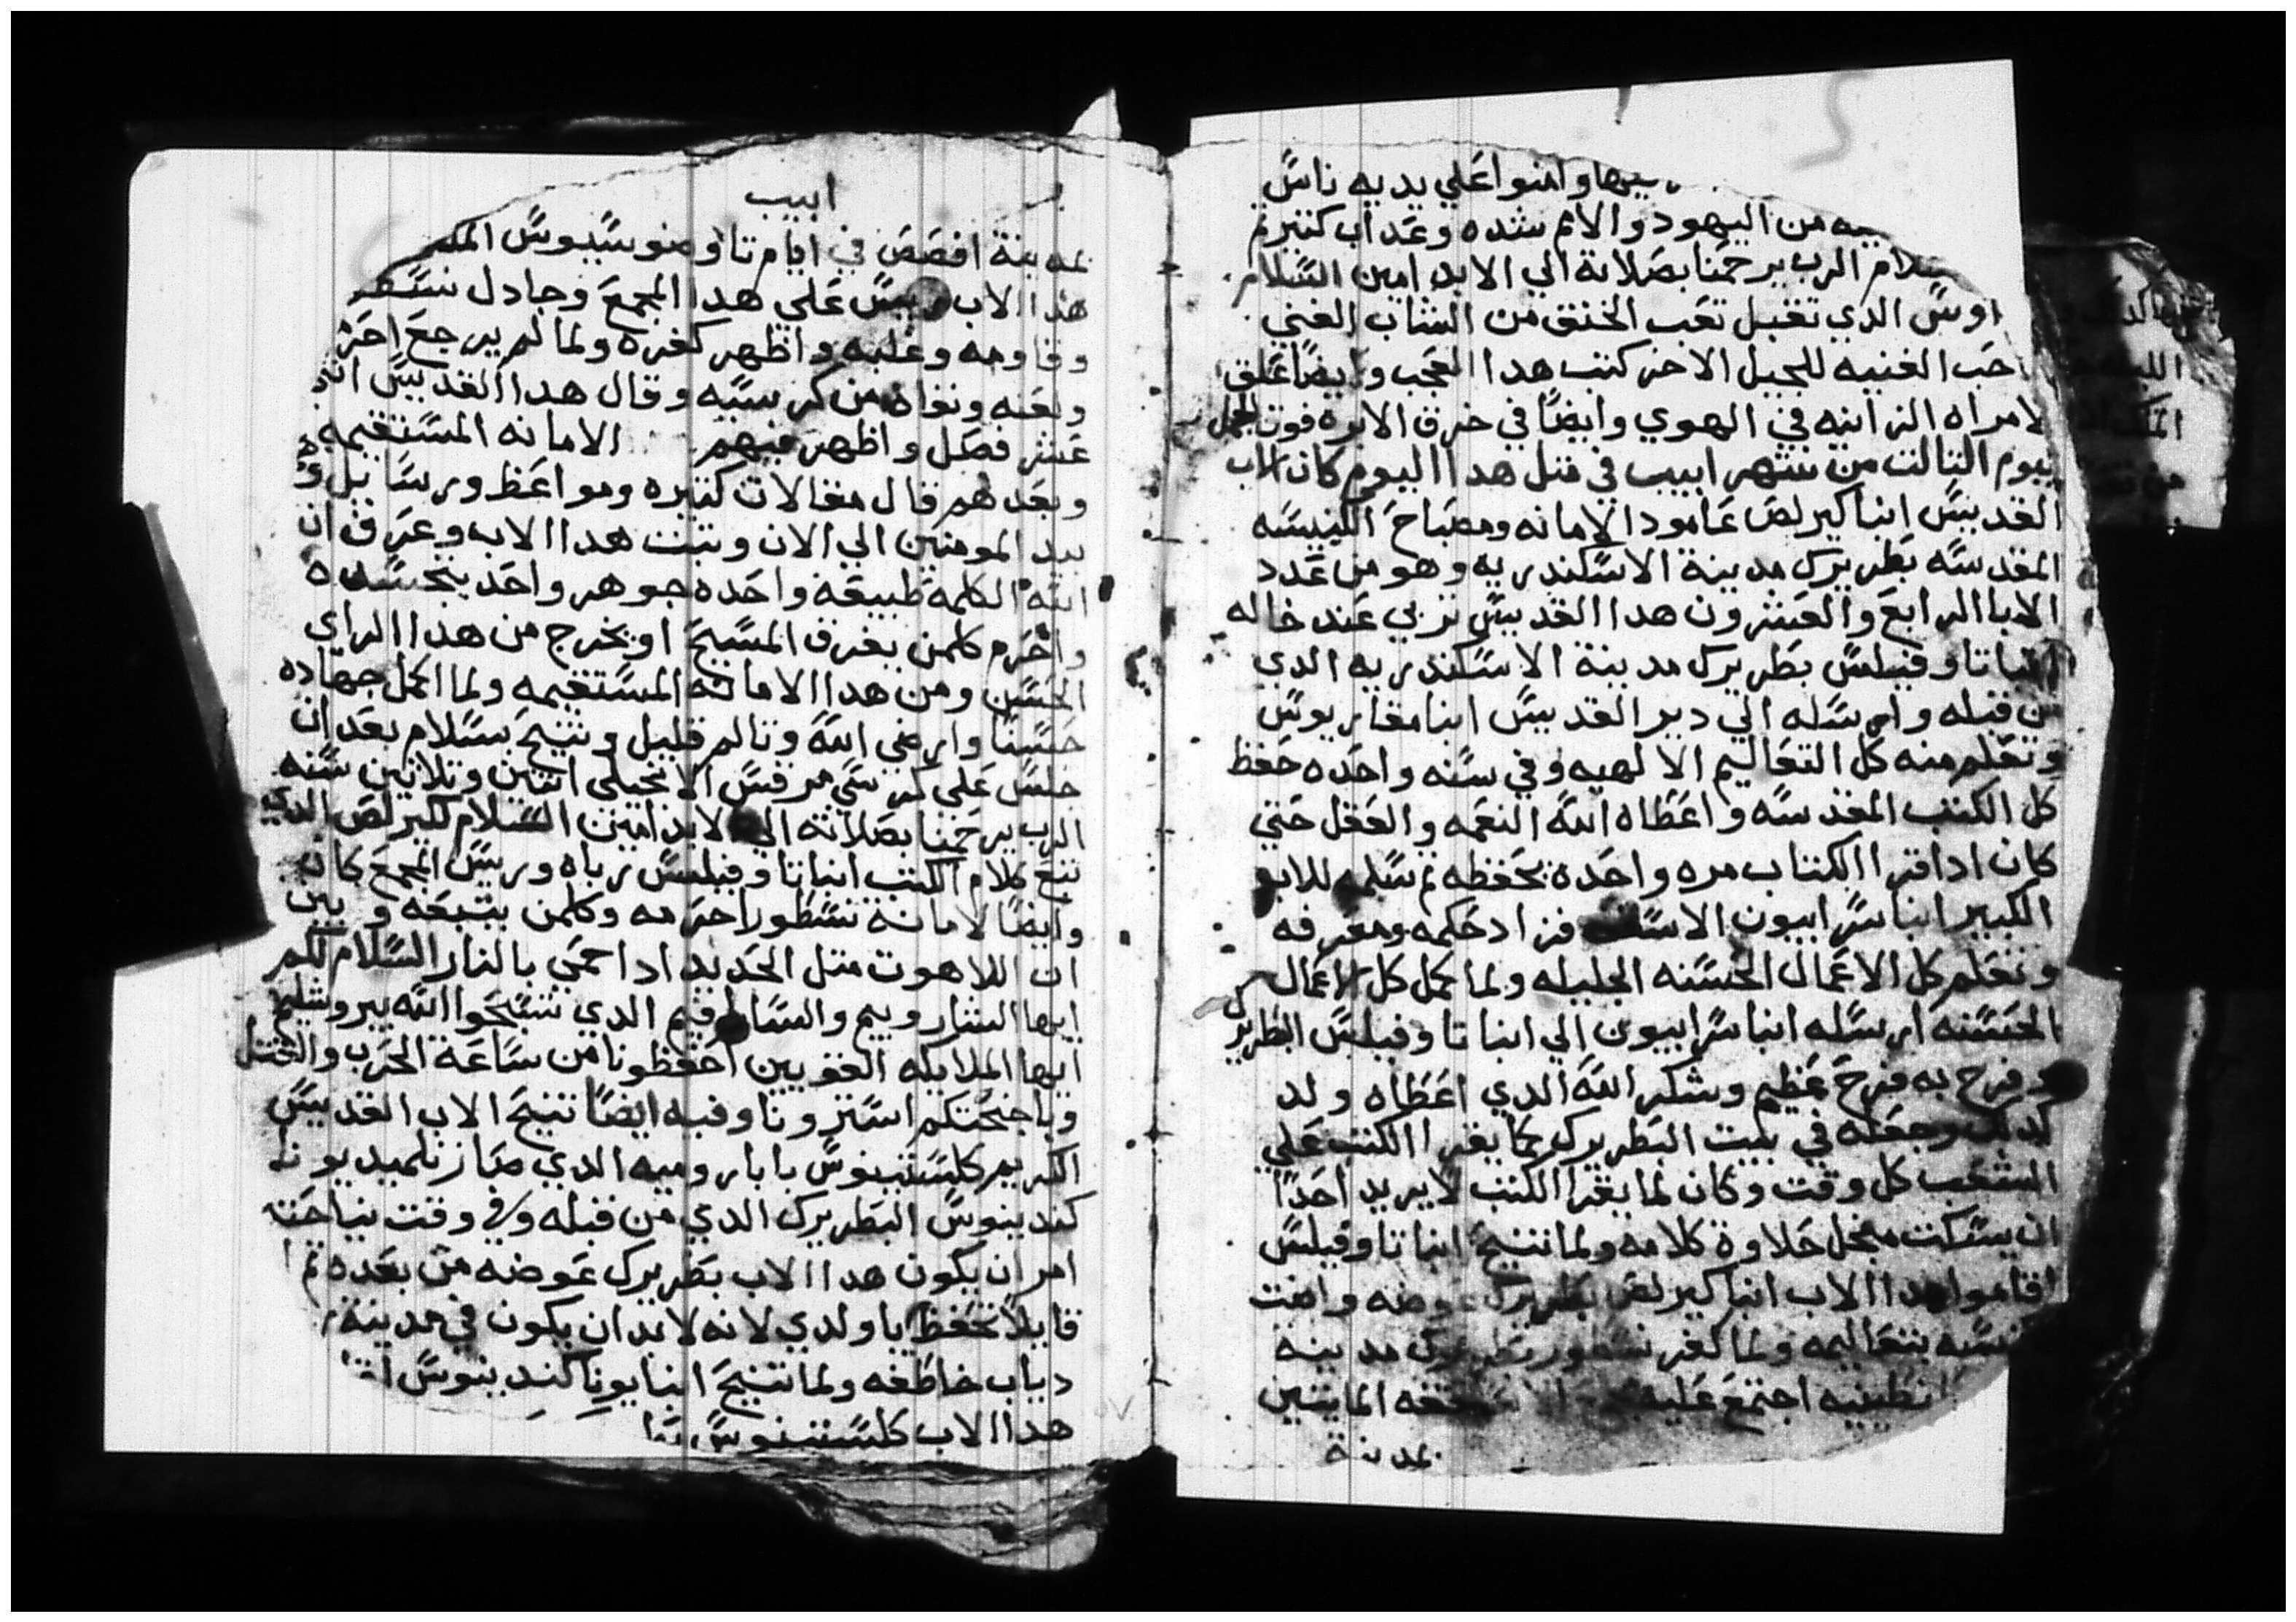 وامنوا علي يديه ناس
من اليهود والامم شده وعداب كتير ثم
الرب يرحمنا بصلاته الي الابد امين السلام
الدي تقبل تعب الخنق من الشاب الغني
الغنيه للجيل الاخر كتب هدا العجب وايضا علق
لامراه الزانيه في الهوي وايضا في خرق الابره فوت الجمل
اليوم التالت من شهر ابيب في متل هدا اليوم كان الاب
القديس انبا كيرلص عامود الامانه ومصباح الكنيسه
المقدسه بطريرك مدينة الاسكندريه وهو من عدد
الابا الرابع والعشرون هدا القديس تربي عند خاله
انبا تاوفيلس بطريرك مدينة الاسكندريه الدي
من قبله وارسله الي دير القديس انبا مقاريوس
وتعلم منه كل التعاليم الالهيه وفي سنه واحده حفظ
كل الكتب المقدسه واعطاه الله النعمه والعقل حتي
كان ادا قرا الكتاب مره واحده يحفظه ثم سلمه للابو
الكبير انبا سرابيون الاسقف فزاد حكمه ومعرفه
وتعلم كل الاعمال الحسنه الجليله ولما كمل كل الاعمال
الحسنه ارسله انبا سرابيون الي انبا تاوفيلس البطريرك
وفرح به فرح عظيم وشكر الله الدي اعطاه ولد
كدلك وجعله في بيت البطريرك لما يقرا الكتب علي
الشعب كل وقت وكان لما يقرا الكتب لا يريد احدا
ان يسكت منجل حلاوة كلامه ولما تنيح انبا تاوفيلس
اقاموا هدا الاب انبا كيرلص بطريرك عوضه وامنت
بتعاليمه ولما كفر نسطور بطريرك مدينه
اجتمع عليه الماتين
بمدينة
ابيب
بمدينة افصص في ايام تاوضوسيوس الملك
هدا الاب ريس علي هدا المجمع وجادل نسطور
وقاومه وغلبه واظهر كفره ولما لم يرجع احرمه
ولعنه ونفاه من كرسيه وقال هدا القديس اتني
عشر فصل واظهر فيهم الامانه المستقيمه
وبعدهم قال مقالات كتيره ومواعظ ورسايل
بيد المومنين الي الان وتبت هدا الاب وعرف ان
الله الكلمه طبيعه واحده جوهر واحد بتجسده
واحرم كلمن يفرق المسيح او يخرج من هدا الراي
الحسن ومن هدا الامانه المستقيمه ولما اكمل جهاده
حسنا وارضي الله وتالم قليل وتنيح بسلام بعد ان
جلس علي كرسي مرقس الانجيلي اتنين وتلاتين سنه
الرب يرحمنا بصلاته الي الابد امين السلام لكيرلص الدي
تبع كلام الكتب انبا تاوفيلس رباه وريس المجمع كان
وايضا لامانة نسطور احرمه وكلمن يتبعه وبين
ان اللاهوت متل الحديد ادا حمي بالنار السلام لكم
ايها الشاروبيم والساراقيم الدي تسبحوا الله بيروشليم
ايها الملايكه القويين احفظونا من ساعة الحرب والقتل
وباجنحتكم استرونا وفيه ايضا تنيح الاب القديس
الكريم كلستينوس بابا روميه الدي صار تلميد يونا
كندينوس البطريرك الدي من قبله وفي وقت نياحته
امر ان يكون هدا الاب بطريرك عوضه من بعده ثم
قايلا تحفظ يا ولدي لانه لابد ان يكون في مدينة
دياب خاطفه ولما تنيح انبا يونا كندينوس
هدا الاب كلستينوس